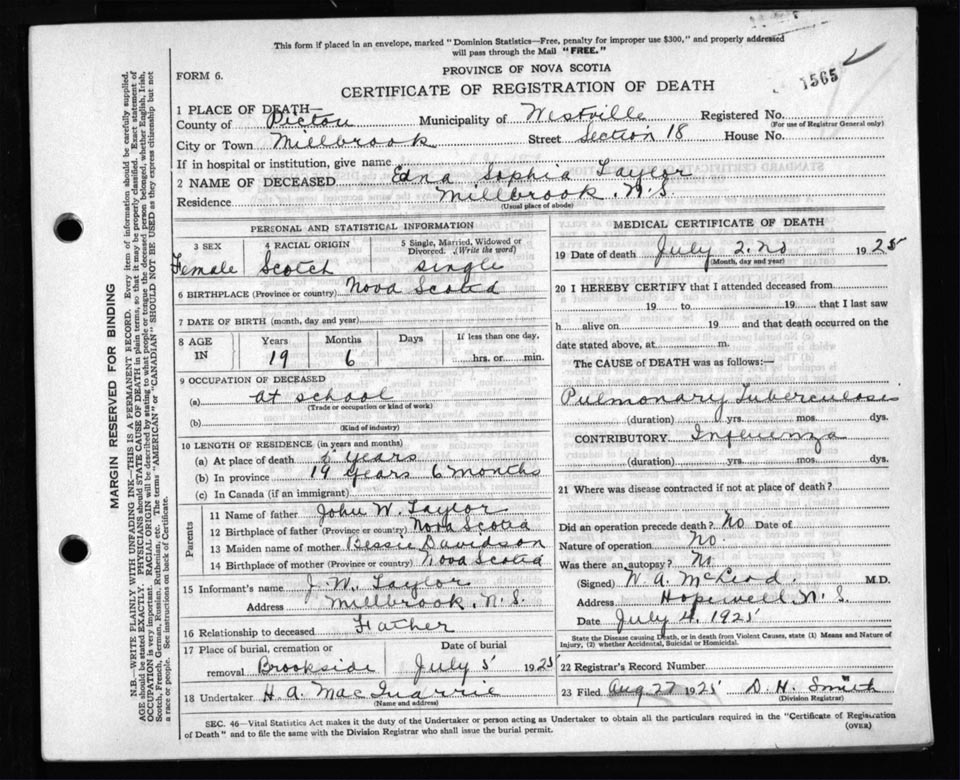 This form if placed in an envelope, marked "Dominion Statistics—Free, penalty for improper use $300," and properly addressed
will pass through the Mail "FREE."
FORM 6.
PROVINCE OF NOVA SCOTIA
1565
CERTIFICATE OF REGISTRATION OF DEATH
1 PLACE OF DEATH—
County of Pictou Municipality of Westville Registered No.
(For use of Registrar General only)
City or Town Millbrook Street Section 18 House No.
If in hospital or institution, give name
2 NAME OF DECEASED Edna Sophia Taylor
Residence Millbrook, N.S.
(Usual place of abode)
PERSONAL AND STATISTICAL INFORMATION
3 SEX 4 RACIAL ORIGIN 5 Single, Married, Widowed or
Divorced. (Write the word)
Female Scotch single
6 BIRTHPLACE (Province or country) Nova Scotia
7 DATE OF BIRTH (month, day and year)
8 AGE IN Years Months Days If less than one day,
19 6 hrs. or min.
9 OCCUPATION OF DECEASED
(a) at school
(Trade or occupation or kind of work)
(b)
(Kind of industry)
10 LENGTH OF RESIDENCE (in years and months)
(a) At place of death years
(b) In province 19 years 6 months
(c) In Canada (if an immigrant)
Parents
11 Name of father John W. Taylor
12 Birthplace of father (Province or country) Nova Scotia
13 Maiden name of mother Bessie Davidson
14 Birthplace of mother (Province or country) Nova Scotia
15 Informant's name J. W. Taylor
Address Millbrook, N.S.
16 Relationship to deceased Father
17 Place of burial, cremation or Date of burial
removal Brookside July 5 1925
18 Undertaker H. A. MacQuarrie
(Name and address)
MEDICAL CERTIFICATE OF DEATH
19 Date of death July 2.nd 1925
(Month, day and year)
20 I HEREBY CERTIFY that I attended deceased from
19 to 19 that I last saw
h alive on 19 and that death occurred on the
date stated above, at m.
The CAUSE of DEATH was as follows:—
Pulmonary Tuberculosis
(duration) yrs. mos. dys.
CONTRIBUTORY Influenza
(duration) yrs. mos. dys.
21 Where was disease contracted if not at place of death?
Did an operation precede death? No Date of
Nature of operation No.
Was there an autopsy? No.
(Signed) W. A. McLeod. M.D.
Address Hopewell N.S.
Date July 4. 1925
State the Disease causing Death, or in death from Violent Causes, state (1) Means and Nature of
Injury, (2) whether Accidental, Suicidal or Homicidal.
22 Registrar's Record Number
23 Filed Aug 27 1925 D. H. Smith
(Division Registrar)
SEC. 46—Vital Statistics Act makes it the duty of the Undertaker or person acting as Undertaker to obtain all the particulars required in the "Certificate of Registration
of Death" and to file the same with the Division Registrar who shall issue the burial permit.
(OVER)
MARGIN RESERVED FOR BINDING
N.B.—WRITE PLAINLY WITH UNFADING INK—THIS IS A PERMANENT RECORD. Every item of information should be carefully supplied.
AGE should be stated EXACTLY. PHYSICIANS should STATE CAUSE OF DEATH in plain terms, so that it may be properly classified. Exact statement of
OCCUPATION is very important. RACIAL ORIGIN will be described by stating to what people or tongue the deceased person belonged, whether English, Irish,
Scotch, French, German, Russian, Ruthenian, etc. The terms "AMERICAN" or "CANADIAN" SHOULD NOT BE USED as they express citizenship but not
a race or people. See instructions on back of Certificate.